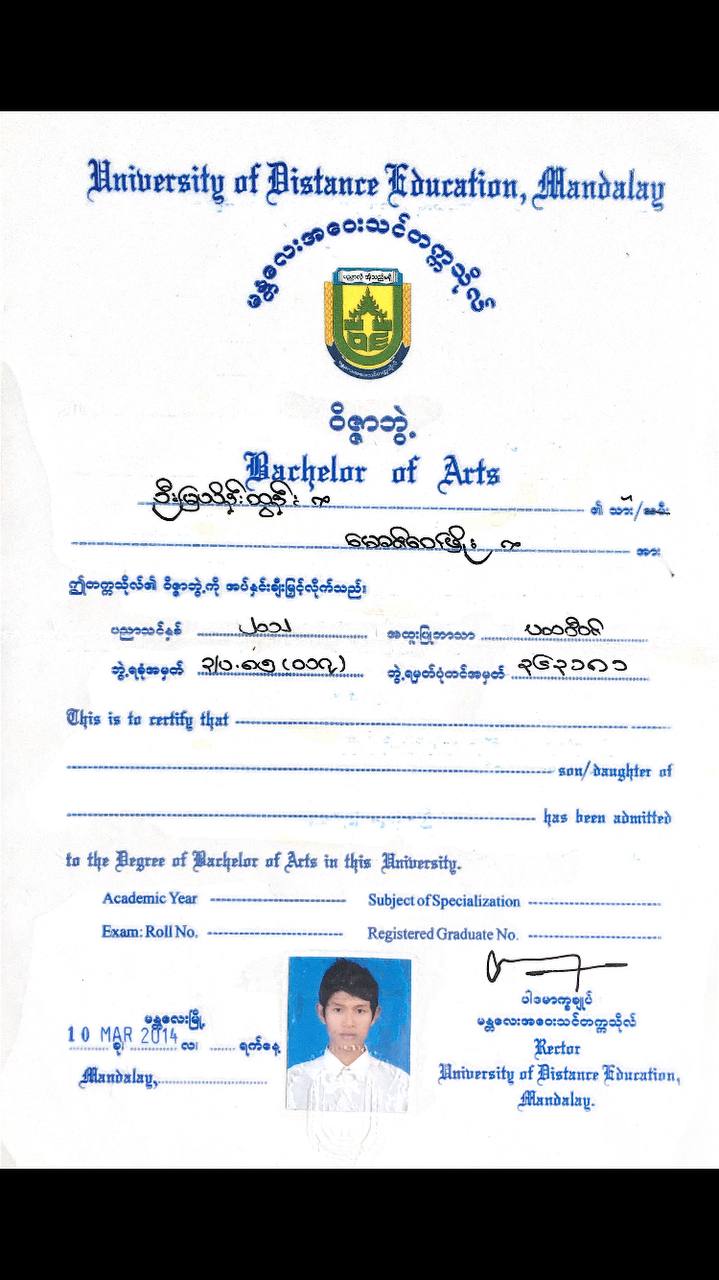 University of Distance Education, Mandalay
မန္တလေးအဝေးသင်တက္ကသိုလ်
ဝိဇ္ဇာဘွဲ့
Bachelor of Arts
ဦးမြသိန်းထွန်း ၏ သား/သမီး
အား
ဤတက္ကသိုလ်၏ ဝိဇ္ဇာဘွဲ့ကို အပ်နှင်းချီးမြှင့်လိုက်သည်။
ပညာသင်နှစ် အထူးပြုဘာသာ ပထဝီဝင်
ဘွဲ့ရခုံအမှတ် ဘွဲ့ရမှတ်ပုံတင်အမှတ် ၃၆၃၁၈၁
This is to certify that
son/daughter of
has been admitted
to the Degree of Bachelor of Arts in this University.
Academic Year Subject of Specialization
Exam: Roll No. Registered Graduate No.
ပါမောက္ခချုပ်
မန္တလေးမြို့ မန္တလေးအဝေးသင်တက္ကသိုလ်
10 MAR 2014 ခု လ၊ ရက်နေ့
Rector
Mandalay, University of Distance Education,
Mandalay.